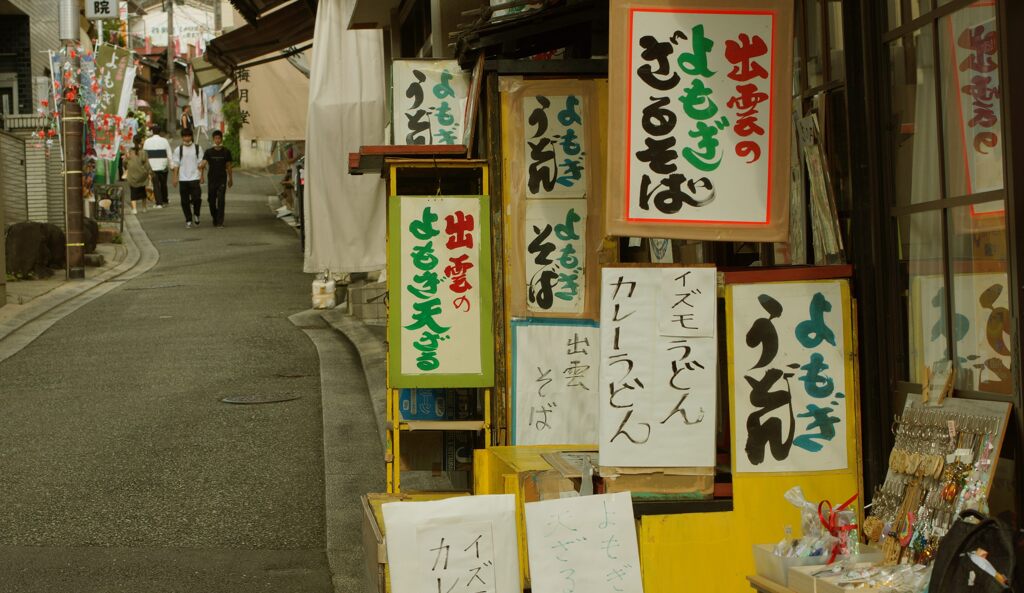 院
梅月堂
よもぎ
うどん
よもぎ
うどん
よもぎ
そば
出雲の
よもぎ
ざるそば
出雲の
よもぎ天ざる
出雲
そば
イズモうどん
カレーうどん
よもぎ
うどん
イズ
カレ
よもぎ
天ざる
出雲の